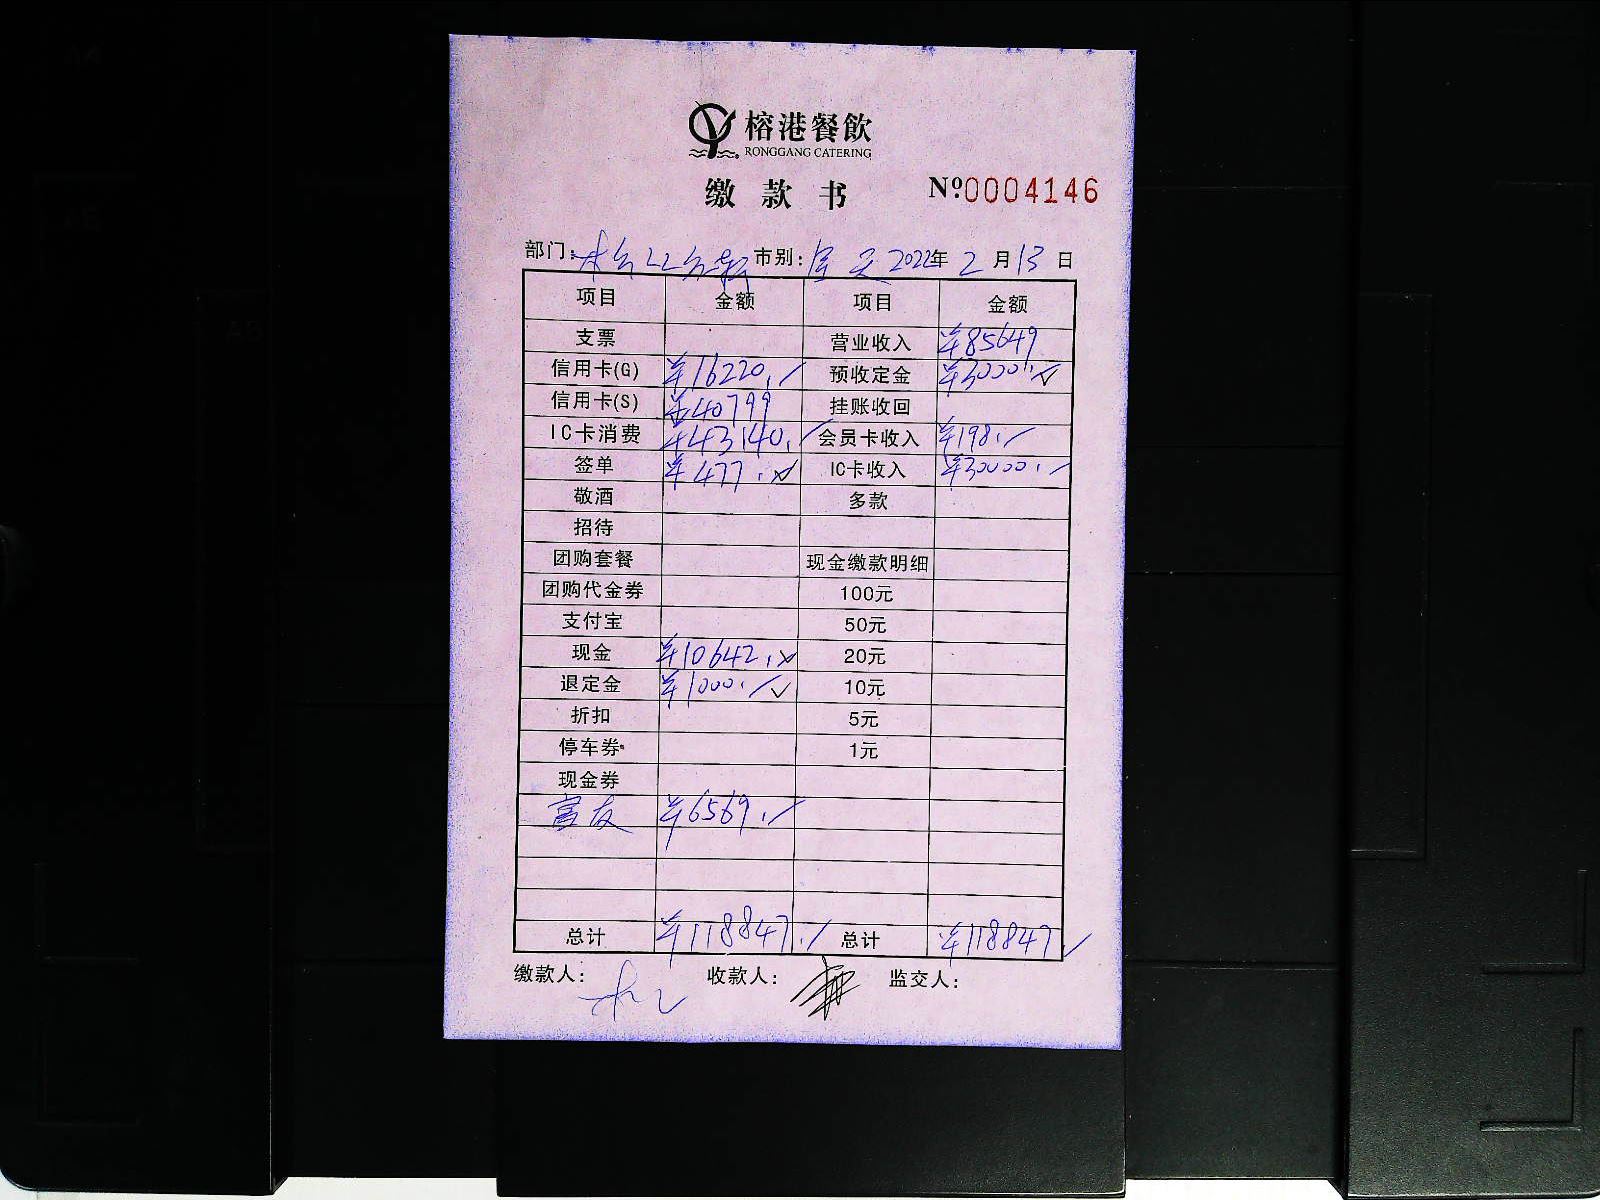 榕港餐飲
RONGGANG CATERING
缴款书 Nº.0004146
部门: 市别: 2022年 2月13日
项目 金额 项目 金额
支票 营业收入 ¥85649
信用卡(G) ¥16220. 预收定金 ¥3000.
信用卡(S) ¥40799 挂账收回
IC卡消费 ¥43140. 会员卡收入 ¥198.
签单 ¥477. IC卡收入 ¥30000.
敬酒 多款
招待
团购套餐 现金缴款明细
团购代金券 100元
支付宝 50元
现金 ¥10642. 20元
退定金 ¥1000. 10元
折扣 5元
停车券 1元
现金券
富友 ¥6569.
总计 ¥118847. 总计 ¥118847.
缴款人: 收款人: 监交人: